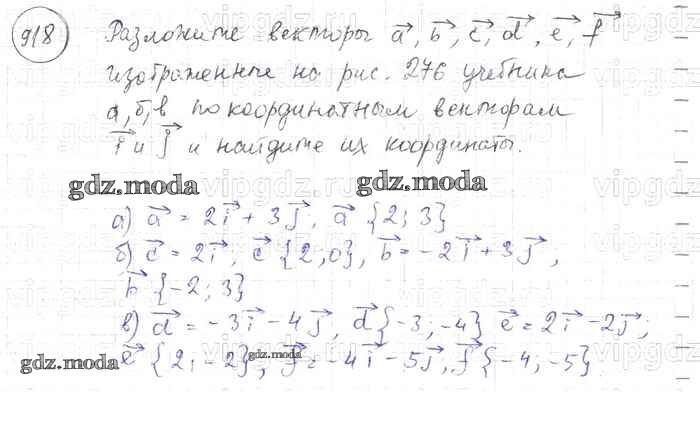 918 Разложите векторы a⃗, b⃗, c⃗, d⃗, e⃗, f⃗
изображенные на рис. 276 учебника
а, б, в по координатным векторам
i⃗ и j⃗ и найдите их координаты.
gdz.moda gdz.moda
а) a⃗ = 2i⃗ + 3j⃗, a⃗ {2; 3}
б) c⃗ = 2i⃗, c⃗ {2, 0}, b⃗ = -2i⃗ + 3j⃗,
b⃗ {-2; 3}
в) d⃗ = -3i⃗ - 4j⃗, d⃗ {-3; -4} e⃗ = 2i⃗ - 2j⃗;
e⃗ {2; -2}, f⃗ = -4i⃗ - 5j⃗, f⃗ {-4; -5}
gdz.moda gdz.moda gdz.moda